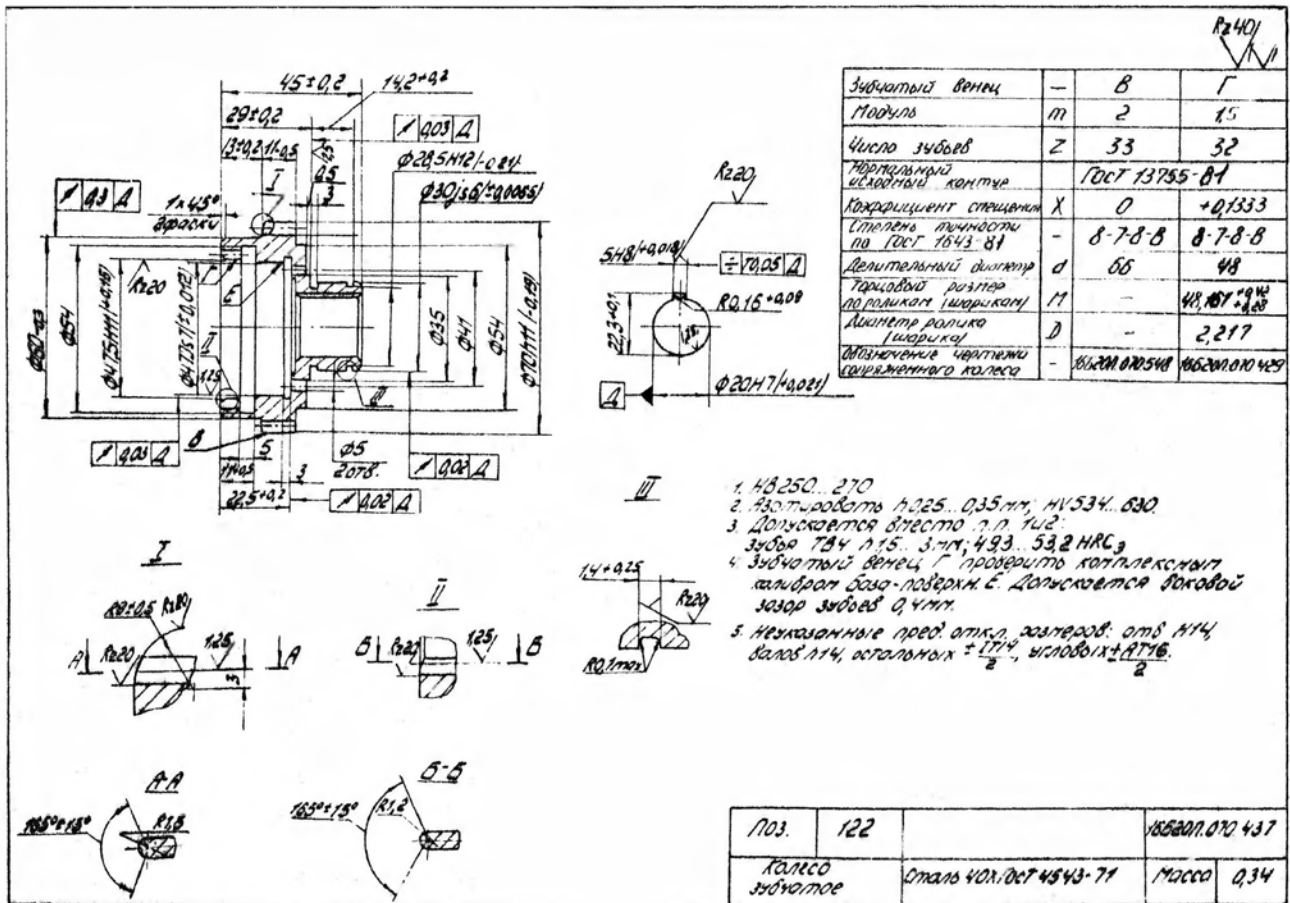 Rz40
45±0,2
14,2+0,2
29±0,2
0,03 Д
13±0,2
11-0,5
1,25
φ28,5H12(-0,21)
0,5
φ30js6(±0,0065)
3
I
0,3 Д
1×45°
2фаски
Rz20
E
II
1,25
φ60-0,3
φ54
φ47,5H11(+0,16)
φ47Js7(±0,012)
φ35
φ41
φ54
φ70h11(-0,19)
В
5
3
22,5+0,2
0,03 Д
φ5
2отв.
0,02 Д
0,02 Д
Rz20
5H8(+0,018)
0,05 Д
R0,16+0,08
22,3+0,1
φ20H7(+0,021)
Д
Зубчатый венец – В Г
Модуль m 2 1,5
Число зубьев Z 33 32
Нормальный исходный контур ГОСТ 13755-81
Коэффициент смещения X 0 +0,1333
Степень точности по ГОСТ 1643-81 - 8-7-8-В 8-7-8-В
Делительный диаметр d 66 48
Торцовый размер по роликам (шарикам) M –
Диаметр ролика (шарика) D – 2,217
Обозначение чертежа сопряженного колеса - 16Б20П.070.548 16Б20П.070.429
1. НВ250...270
2. Азотировать h0,25...0,35мм; HV534...630.
3. Допускается вместо п.п. 1и2:
зубья ТВЧ h1,5...3мм; 49,3...53,2 HRCэ
4. Зубчатый венец Г проверить комплексным
калибром база-поверхн. Е. Допускается боковой
зазор зубьев 0,4мм.
5. Неуказанные пред. откл. размеров: отв H14,
валов h14, остальных ±IT14/2, угловых ±AT16/2.
I
R8±0,5
Rz80
Rz20
1,25
А
А
3
II
Б
Rz20
1,25
III
1,4+0,25
Rz20
R0,1max
А-А
165°±15°
Б-Б
165°±15°
R1,2
Поз. 122 16Б20П.070.437
Колесо зубчатое Сталь 40Х ГОСТ 4543-71 Масса 0,34